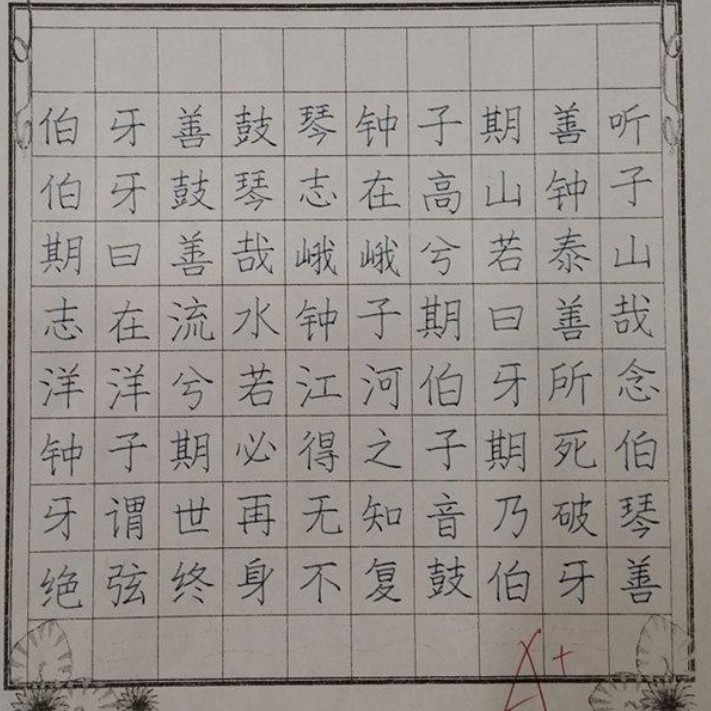 伯牙善鼓琴钟子期善听
伯牙鼓琴志在高山钟子
期曰善哉峨峨兮若泰山
志在流水钟子期曰善哉
洋洋兮若江河伯牙所念
钟子期必得之子期死伯
牙谓世再无知音乃破琴
绝弦终身不复鼓伯牙善
A+